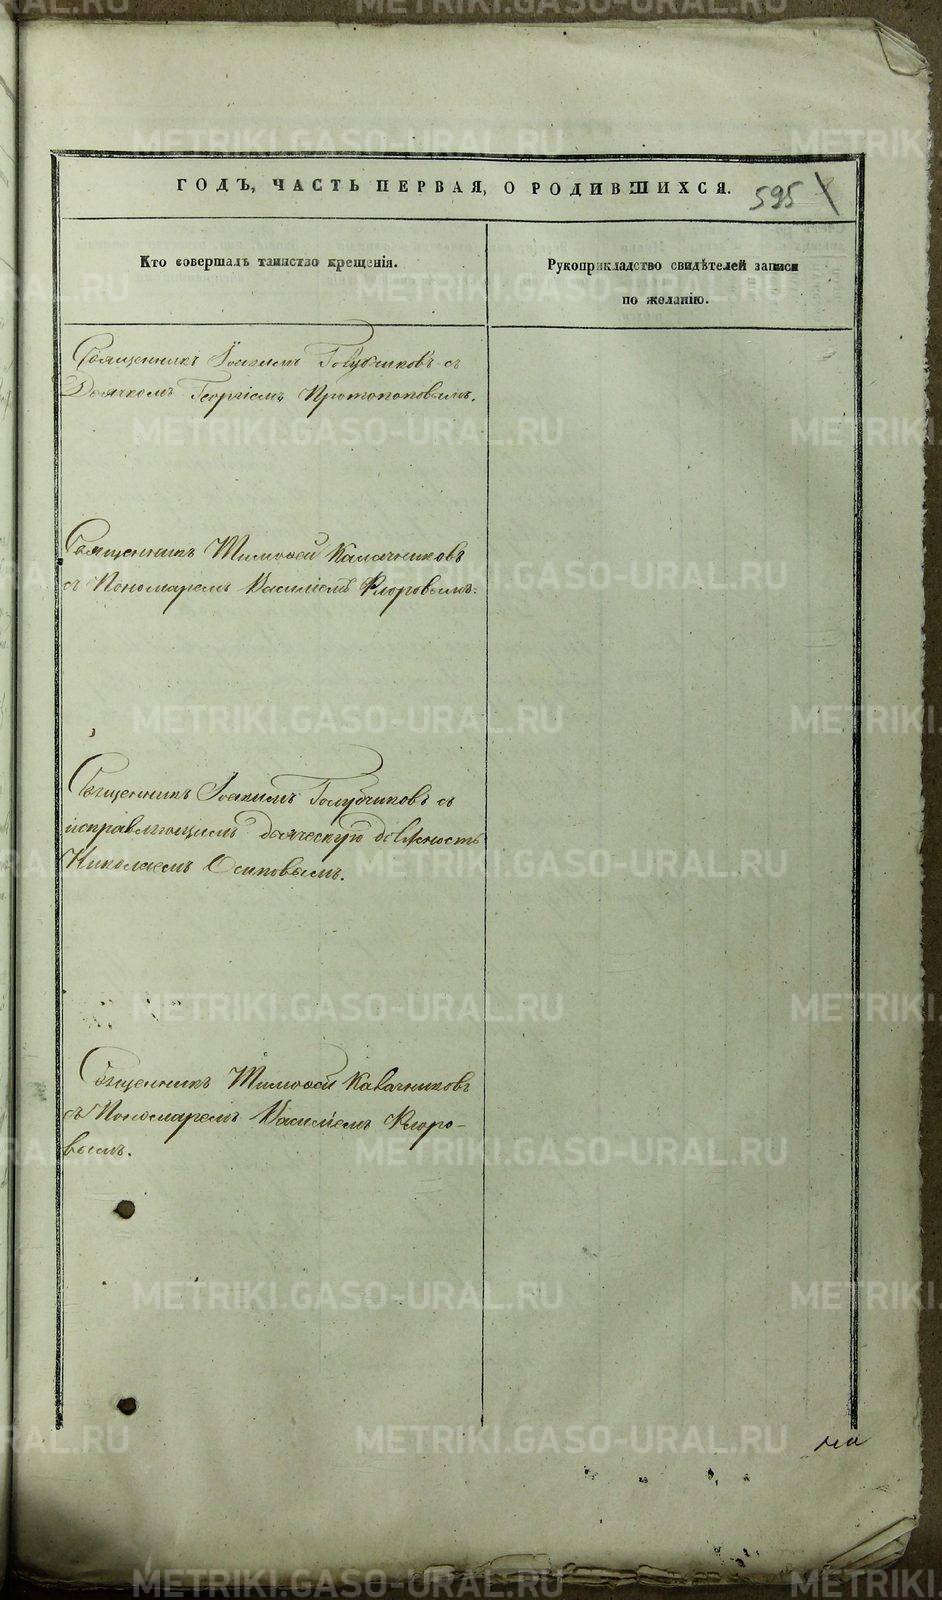 ГОДЪ, ЧАСТЬ ПЕРВАЯ, О РОДИВШИХСЯ.
595
Кто совершалъ таинство крещенія.
Рукоприкладство свидѣтелей записи
по желанію.
Священникъ Іоакимъ Голубчиковъ съ
Дьячкомъ Георгіемъ Протопоповымъ.
Священникъ Тимоѳей Калачниковъ
съ Пономаремъ Василіемъ Флоровымъ.
Священникъ Іоакимъ Голубчиковъ съ
исправляющимъ дьяческую должность
Николаемъ Осиповымъ.
Священникъ Тимоѳей Калачниковъ
съ Пономаремъ Василіемъ Флоро-
вымъ.
METRIKI.GASO-URAL.RU